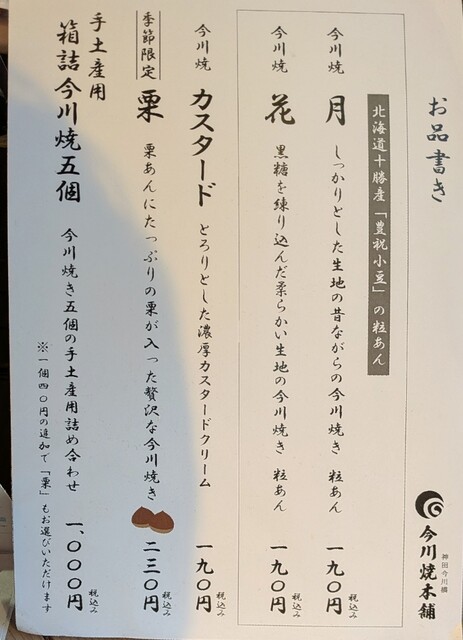 お品書き
神田今川橋
今川焼本舗
北海道十勝産「豊祝小豆」の粒あん
今川焼 月 しっかりとした生地の昔ながらの今川焼き 粒あん 一九〇円 税込み
今川焼 花 黒糖を練り込んだ柔らかい生地の今川焼き 粒あん 一九〇円 税込み
今川焼 カスタード とろりとした濃厚カスタードクリーム 一九〇円 税込み
季節限定 栗 栗あんにたっぷりの栗が入った贅沢な今川焼き 二三〇円 税込み
手土産用
箱詰今川焼五個 今川焼き五個の手土産用詰め合わせ 一、〇〇〇円 税込み
※一個四〇円の追加で「栗」もお選びいただけます